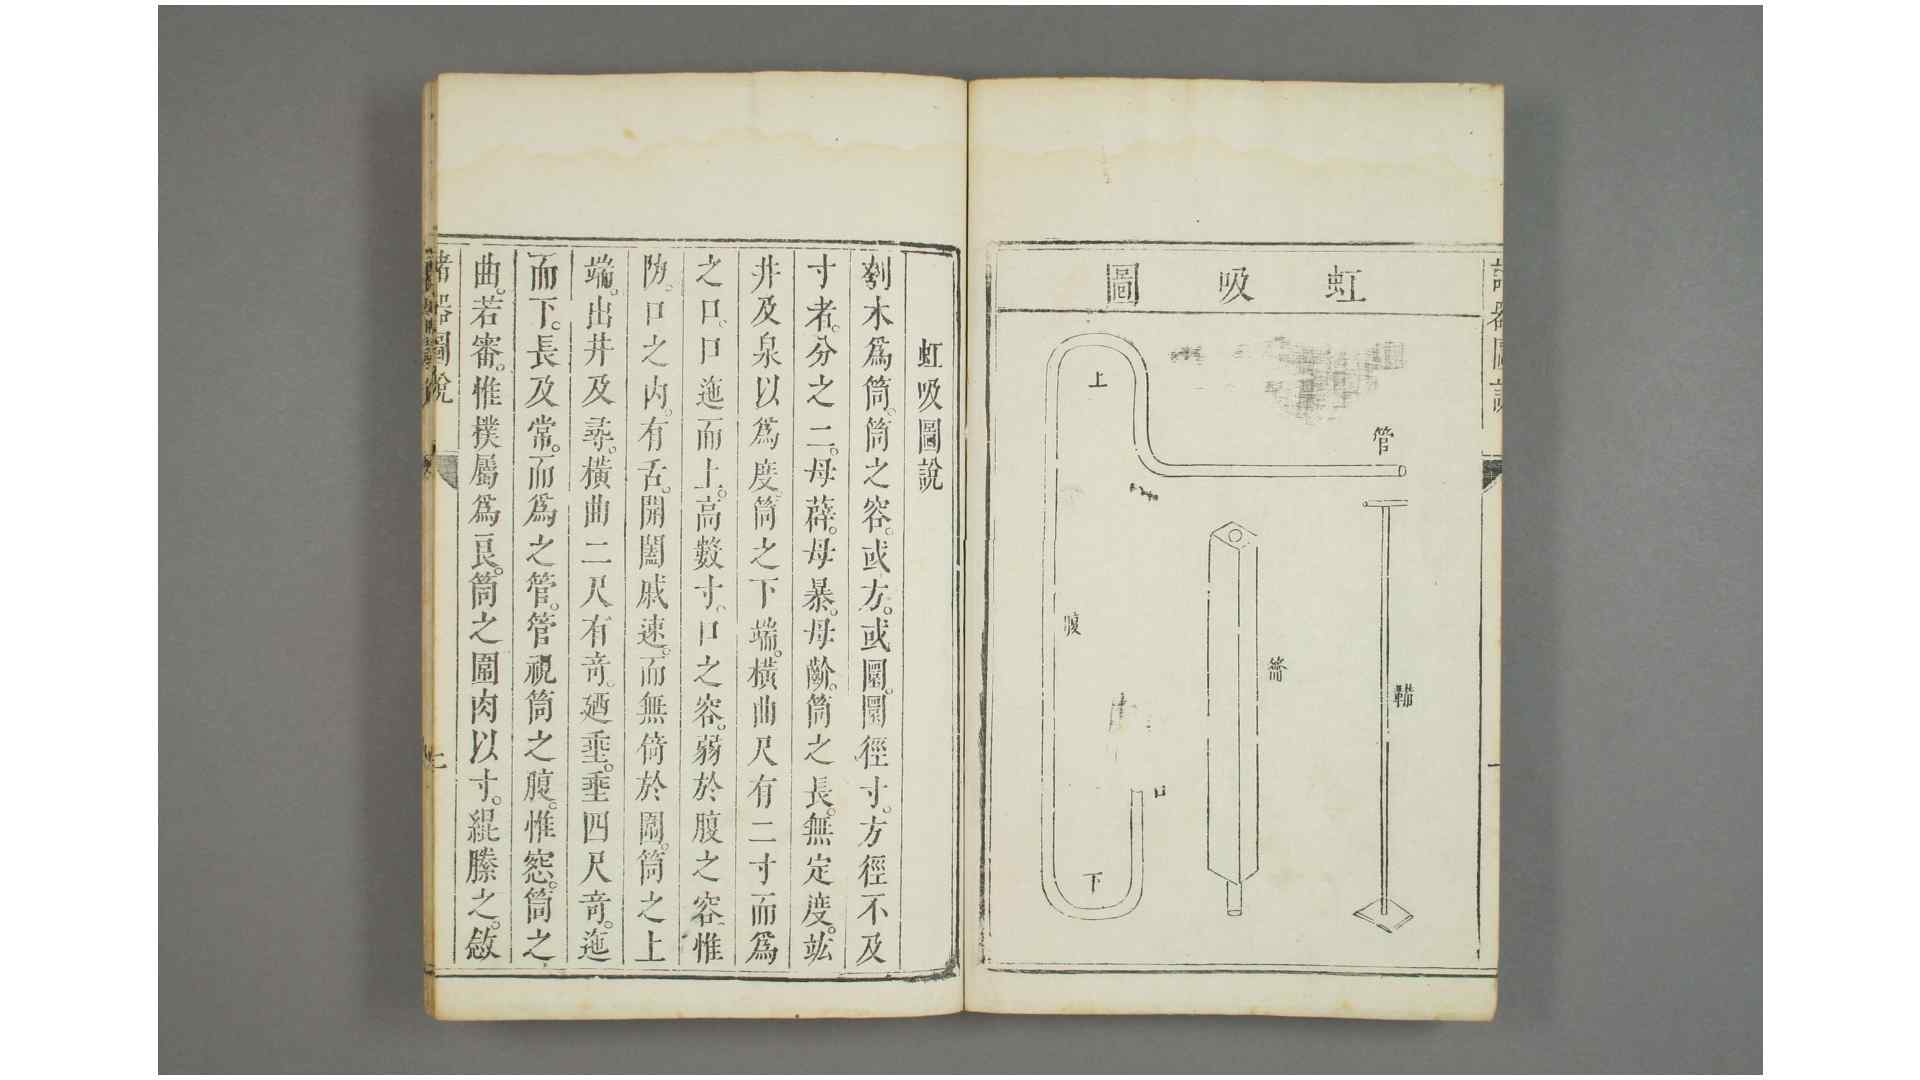 諸器圖說
虹吸圖
管
上
鞴
筩
腹
口
下
虹吸圖說
刳木爲筒。筒之容。或方。或圜。圜徑寸。方徑不及
寸者。分之二。毋薜。毋暴。毋齘。筒之長。無定度。竑
井及泉以爲度。筒之下端。橫曲尺有二寸而爲
之口。口迤而上。高數寸、口之容。弱於腹之容。惟
防。口之内。有舌。開闔戚速。而無倚於圜。筒之上
端。出井及尋。橫曲二尺有奇。廼垂。垂四尺奇。迤
而下。長及常。而爲之管。管視筒之腹。惟窓。筒之
曲。若審。惟樸屬爲良。筒之圍肉以寸。緄縢之。斂
諸器圖說